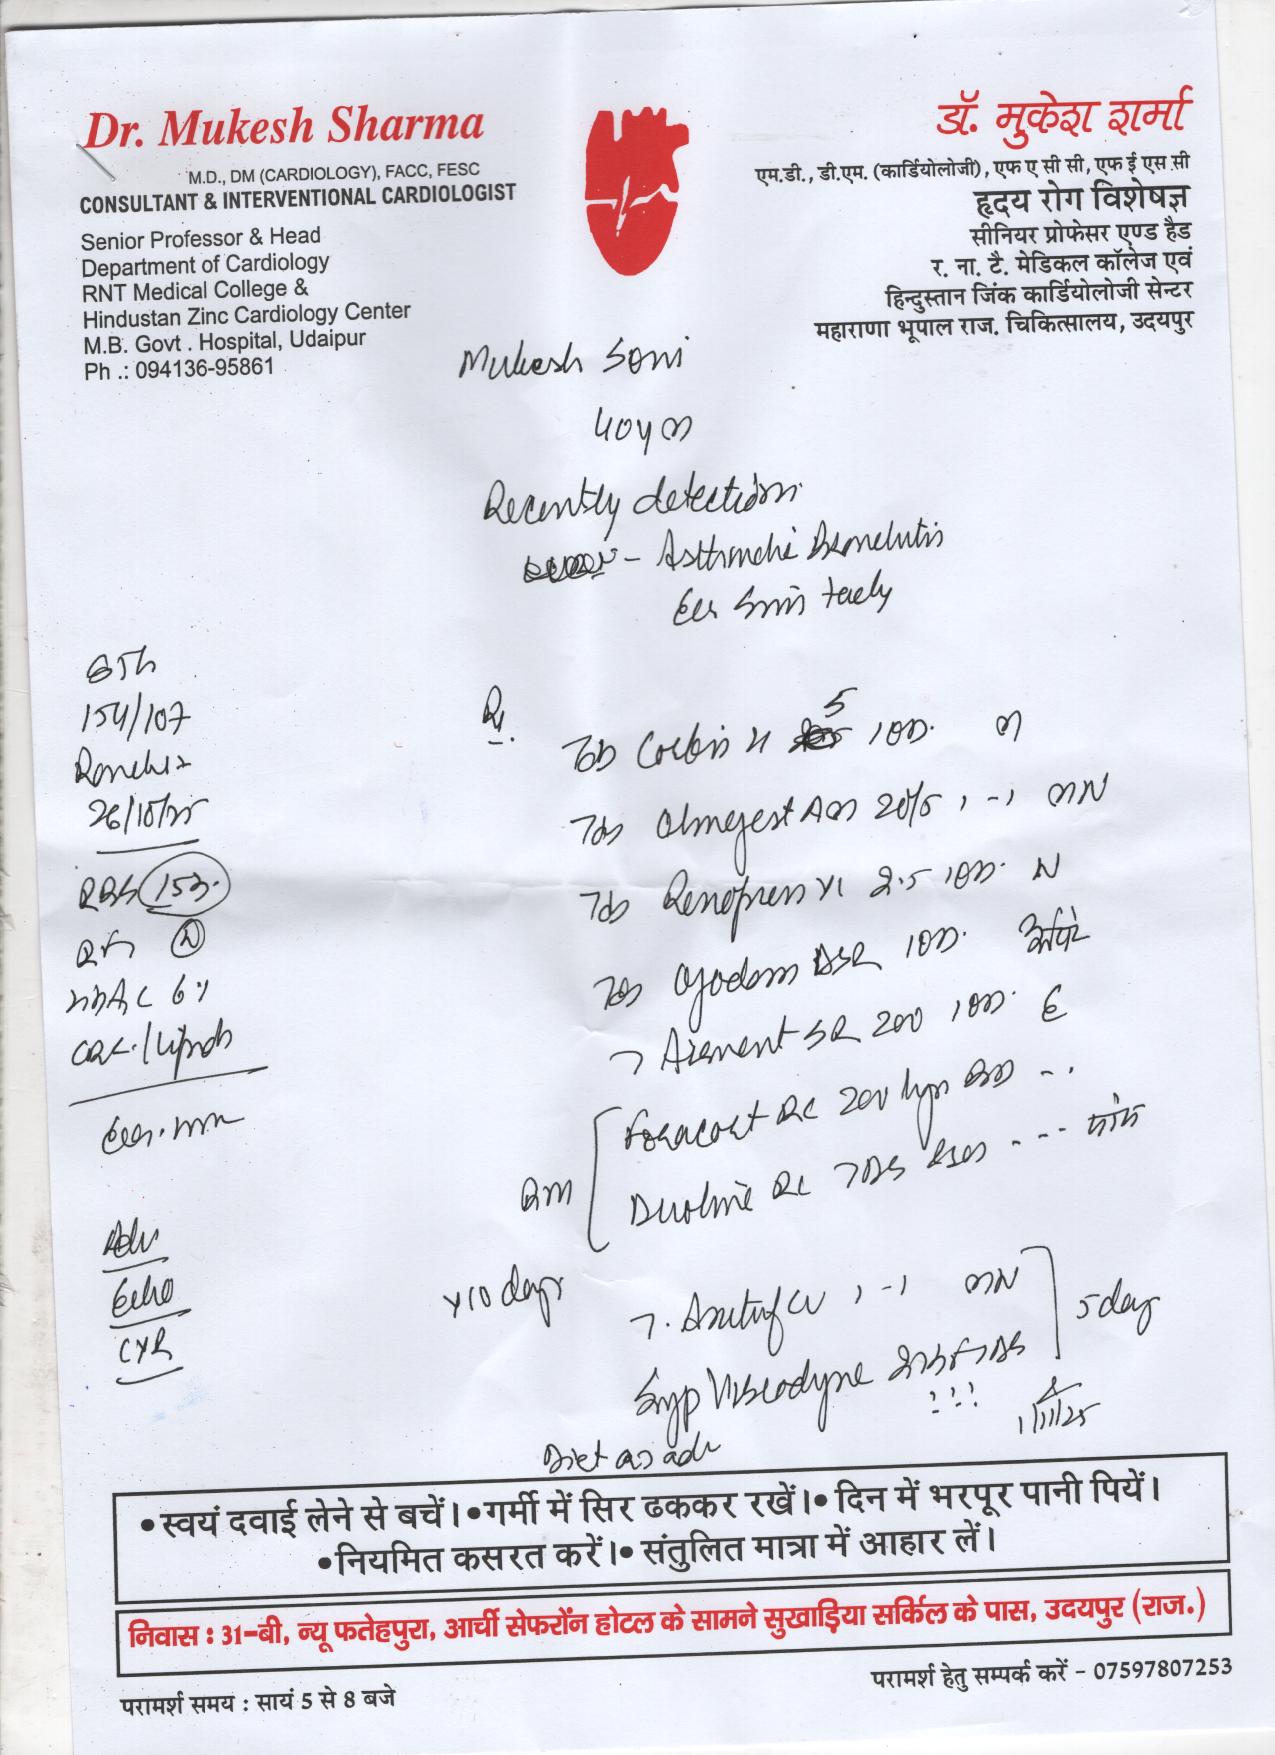 Dr. Mukesh Sharma
M.D., DM (CARDIOLOGY), FACC, FESC
CONSULTANT & INTERVENTIONAL CARDIOLOGIST
Senior Professor & Head
Department of Cardiology
RNT Medical College &
Hindustan Zinc Cardiology Center
M.B. Govt . Hospital, Udaipur
Ph .: 094136-95861
डॉ. मुकेश शर्मा
एम.डी., डी.एम. (कार्डियोलोजी), एफ ए सी सी, एफ ई एस सी
हृदय रोग विशेषज्ञ
सीनियर प्रोफेसर एण्ड हैड
र. ना. टै. मेडिकल कॉलेज एवं
हिन्दुस्तान जिंक कार्डियोलोजी सेन्टर
महाराणा भूपाल राज. चिकित्सालय, उदयपुर
Mukesh Soni
40y m
Recently detection
154/107
26/10/25
RBS 153
6%
Adv
Echo
CXR
Rx.
Tab 5 1OD. M
Tab Olmegest AM 20/5 1-1 MN
Tab 2.5 1OD. N
Tab DSR 1OD.
T SR 200 1OD. E
Foracort RC 200
Duolin RC TDS
x 10 days
T. CV 1-1 MN
Syp Viscodyne TDS
5 days
1/11/25
Diet as adv
•स्वयं दवाई लेने से बचें।•गर्मी में सिर ढककर रखें।• दिन में भरपूर पानी पियें।
•नियमित कसरत करें।• संतुलित मात्रा में आहार लें।
निवास : 31-बी, न्यू फतेहपुरा, आर्ची सेफरोंन होटल के सामने सुखाड़िया सर्किल के पास, उदयपुर (राज.)
परामर्श समय : सायं 5 से 8 बजे
परामर्श हेतु सम्पर्क करें - 07597807253